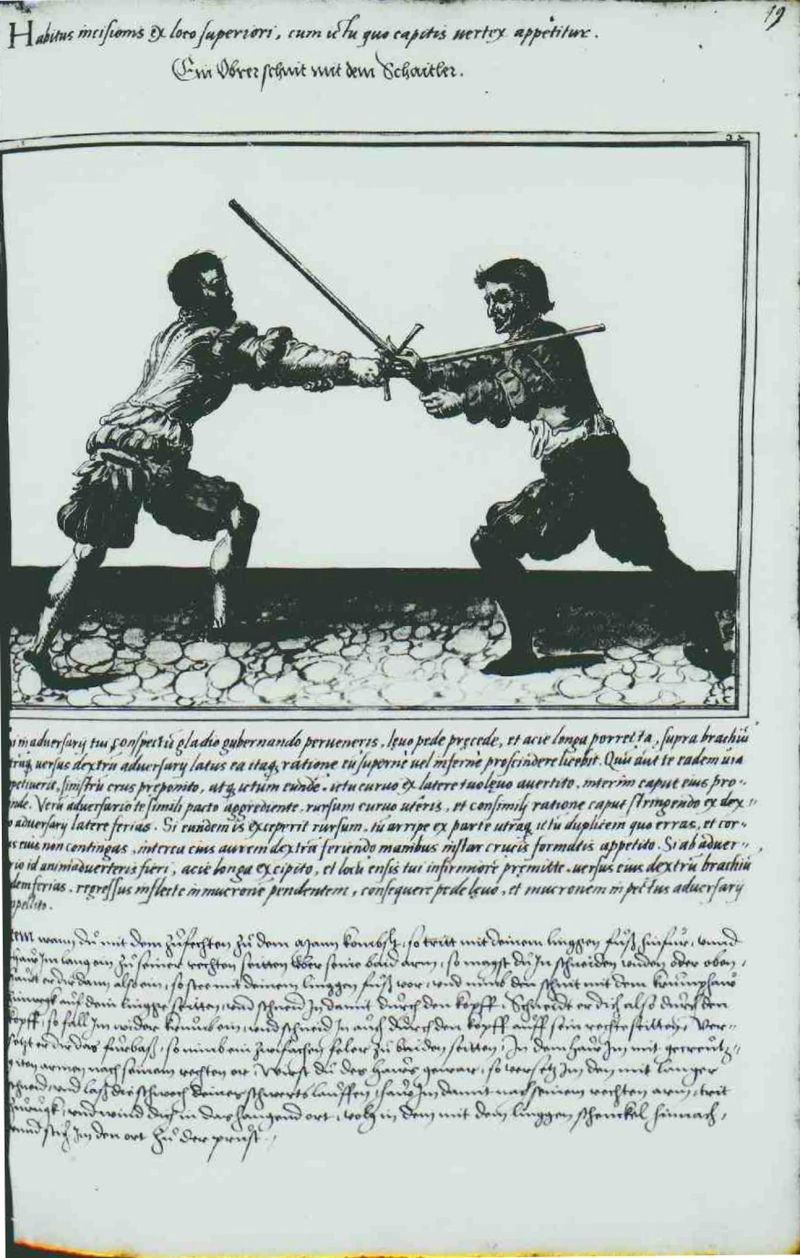 19
Habitus incisionis ex loco superiori, cum ictu quo capitis vertex appetitur.
Ein Oberschnit mit dem Schaitler.
adversarij tui conspectu gladio gubernando perveneris, levo pede precede, et acie longa porrecta, supra brachiu
versus dextru adversarij latus ea itaq, ratione eu superne vel inferne proscindere licebit. Quu aut te eadem via
petiverit, sinistru crus preponito, atq, ictum eunde, ictu curvo ex latere tuo levo avertito, interim caput eius pro-
inde. Veru adversario te simili pacto aggrediente, rursum curvo uteris, et consimili ratione caput stringendo ex dex-
o adversarij latere ferias. Si eundem is exceperit rursum, tu arripe ex parte utraq, ictu duplicem quo erras, et cor-
us eius non contingas, interea eius aurem dextra feriendo manibus instar crucis formatis appetito. Si ab adver-
rio id animadverteris fieri, acie longa excipito, et locu ensis tui infirmiore premitte, versus eius dextru brachiu
dem ferias, regressus inflecte in mucrone pendentem, consequere pede levo, et mucronem in pectus adversarij
ppellito.
Item wann du mit dem zufechten zu dem Mann kombst, so tritt mit deinem linggen fuß hinfur, unnd
haw Im lang ein zu seiner rechten seitten uber seine baid arm, so magst du In schneiden unden oder oben,
er dir dann also ein, so stee mit deinem linggen fuß vor, und nimb den schnit mit dem krumphaw
hinweck auf dein lingge seitten, und schneid In damit durch den kopff. Schneidt er dich also durch den
kopff, so fall Im wider krumb ein, und schneid In auch durch den kopff auff sein rechte seitten, Ver-
setzt er dir das furbaß, so nimb ein zwifachen feler zu baiden seitten, In dem haw Im mit gecreutz-
gten armen nach seinem rechten or. Wirst du des haws gewar, so versetz Im den mit langer
schneid, und laß die schwech deines schwerts lauffen, haw In damit nach seinem rechten arm, trit
zuruck, und wind dich in das hangend ort, volg in dem mit dem linggen schenckel hinnach,
unnd stich Im den ort zu der prust.